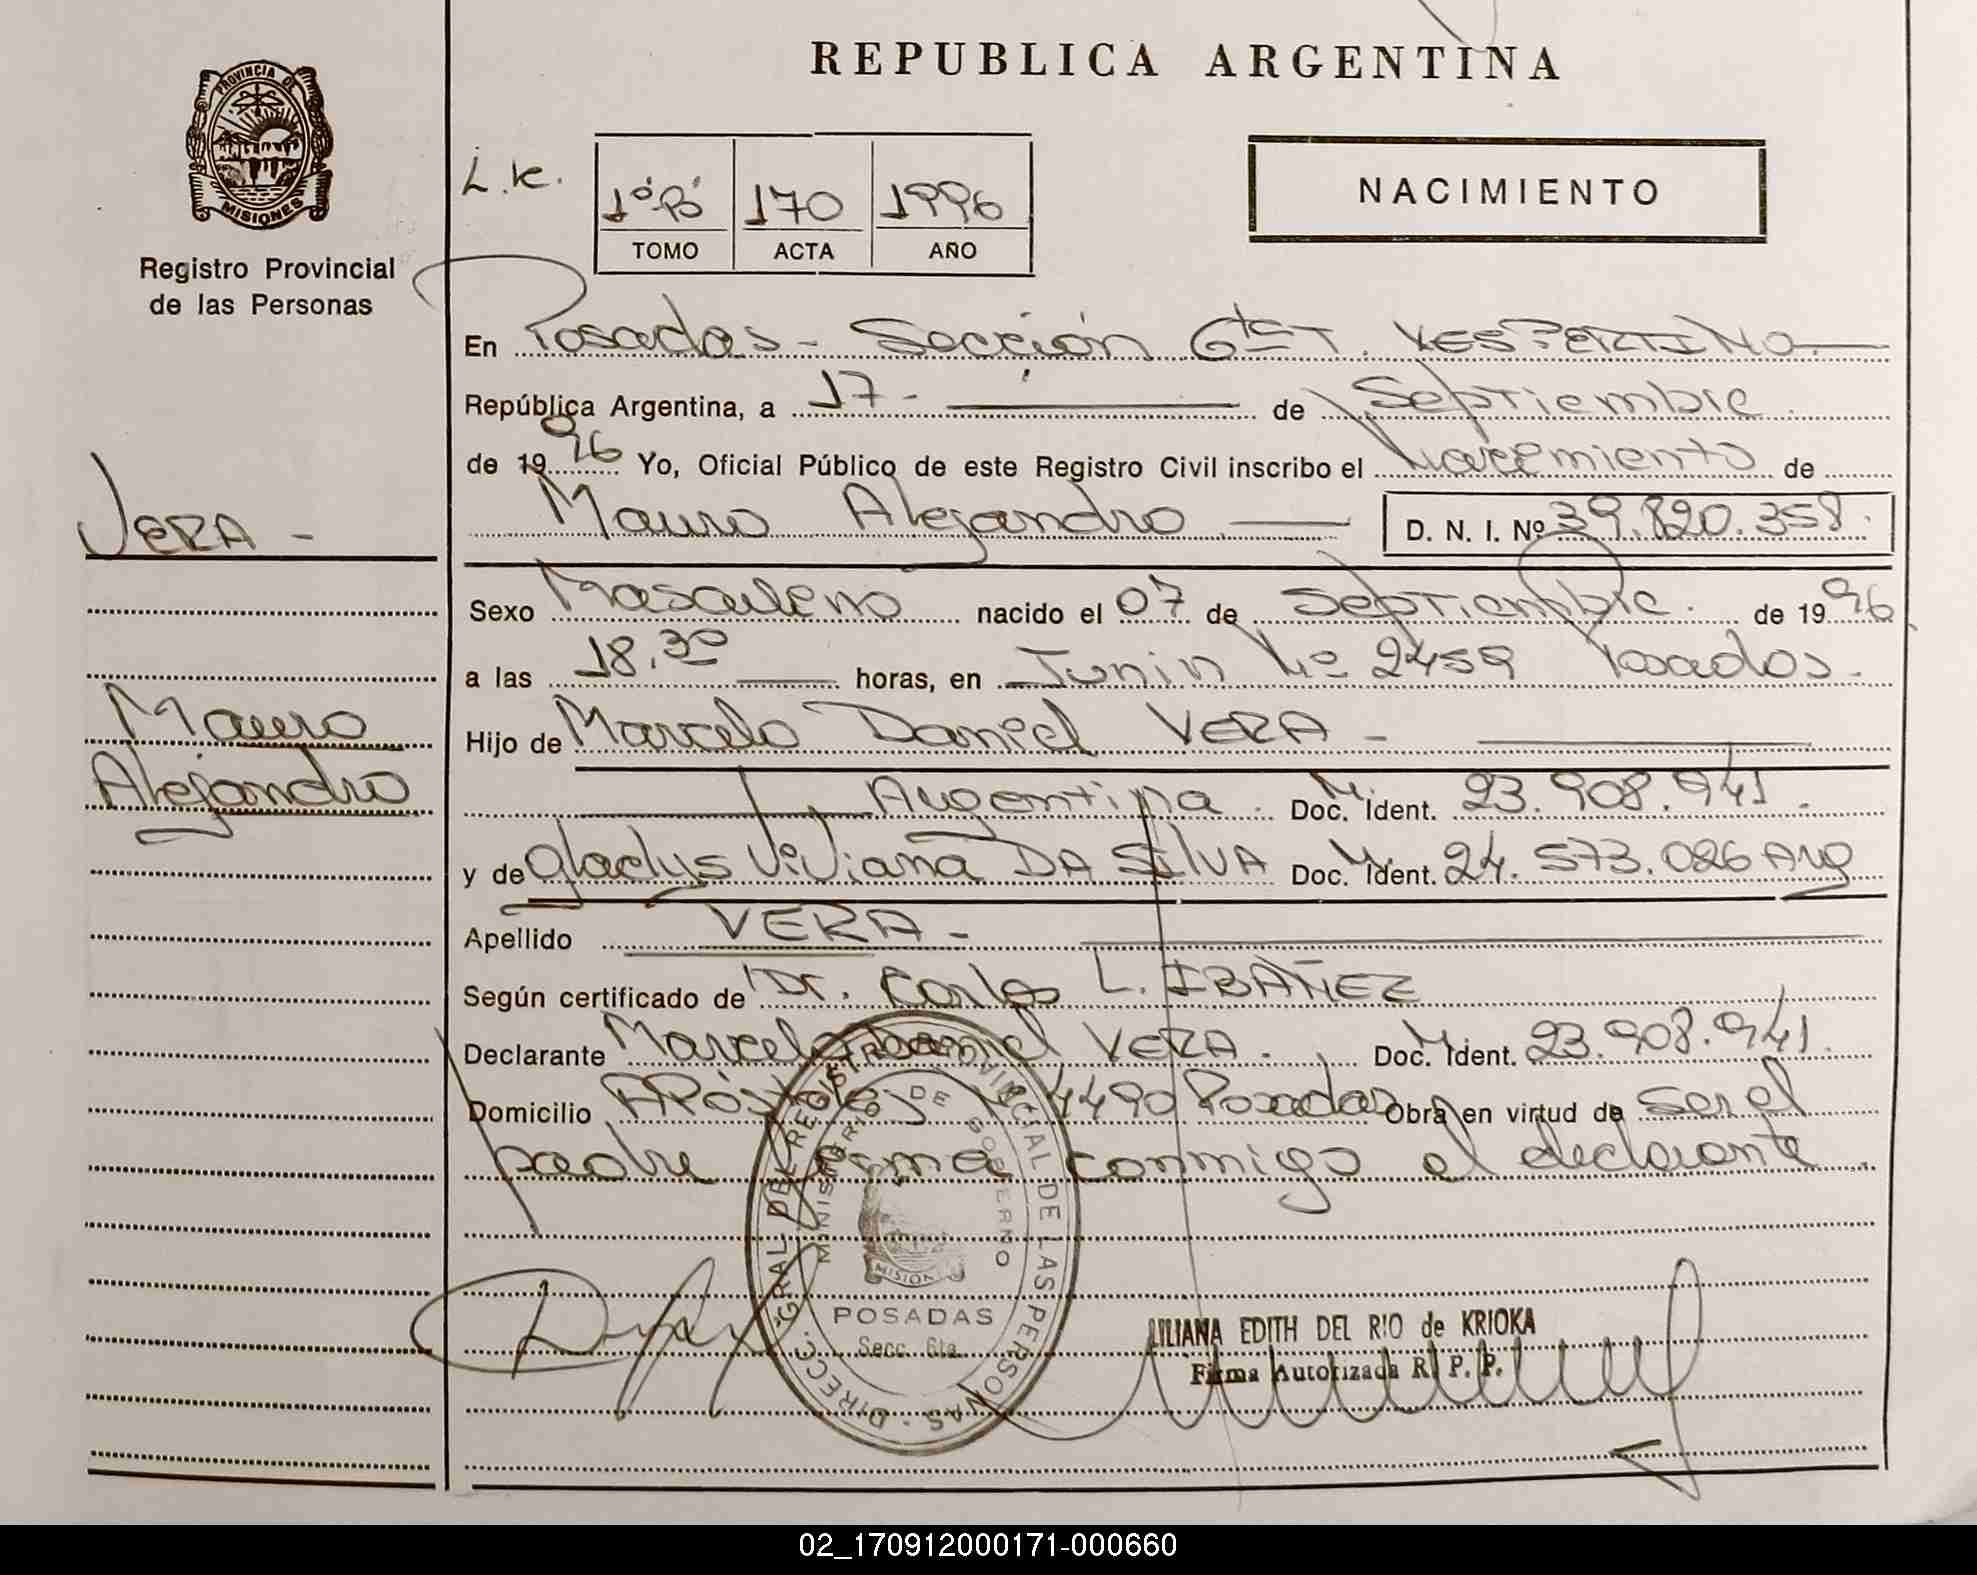 REPUBLICA ARGENTINA
PROVINCIA DE
MISIONES
Registro Provincial
de las Personas
L.K.
1º B 170 1996
TOMO ACTA AÑO
NACIMIENTO
En Posadas - Sección 6ta T. VESPERTINO
República Argentina, a 17 - de Septiembre
de 1996 Yo, Oficial Público de este Registro Civil inscribo el Nacimiento de
VERA -
Mauro Alejandro D. N. I. Nº 39.820.358.
Sexo Masculino nacido el 07 de Septiembre. de 1996
a las 18,30 horas, en Junin Nº 2459 Posadas.
Mauro
Alejandro
Hijo de Marcelo Daniel VERA -
Argentina. Doc. M. Ident. 23.908.941.
y de Gladys Viviana DA SILVA Doc. M. Ident. 24.573.086 Arg
Apellido VERA -
Según certificado de Dr. Carlos L. IBAÑEZ
Declarante Marcelo Daniel VERA. Doc. M. Ident. 23.908.941.
Domicilio APóstoles Nº 4490 Posadas Obra en virtud de ser el
padre firma conmigo el declarante.
DIRECC. GRAL DEL REGISTRO PROVINCIAL DE LAS PERSONAS
MINISTERIO DE GOBERNO
MISIONES
POSADAS
Secc. 6ta.
LILIANA EDITH DEL RIO de KRIOKA
Firma Autorizada R. P. P.
02_170912000171-000660